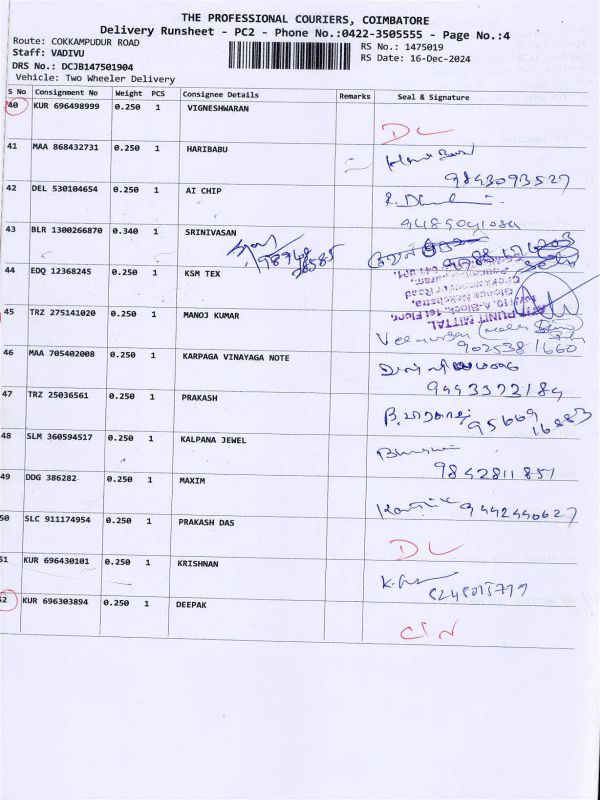 THE PROFESSIONAL COURIERS, COIMBATORE
Delivery Runsheet - PC2 - Phone No.:0422-3505555 - Page No.:4
Route: COKKAMPUDUR ROAD RS No.: 1475019
Staff: VADIVU RS Date: 16-Dec-2024
DRS No.: DCJB147501904
Vehicle: Two Wheeler Delivery
S No Consignment No Weight PCS Consignee Details Remarks Seal & Signature
40 KUR 696498999 0.250 1 VIGNESHWARAN
DL
41 MAA 868432731 0.250 1 HARIBABU
9843093527
42 DEL 530104654 0.250 1 AI CHIP
43 BLR 1300266870 0.340 1 SRINIVASAN
44 EDQ 12368245 0.250 1 KSM TEX
45 TRZ 275141020 0.250 1 MANOJ KUMAR
PUNIT MITTAL
9025381660
46 MAA 705402008 0.250 1 KARPAGA VINAYAGA NOTE
9443372184
47 TRZ 25036561 0.250 1 PRAKASH
95669 16883
48 SLM 360594517 0.250 1 KALPANA JEWEL
9842811851
49 DDG 386282 0.250 1 MAXIM
Karthik 9442440627
50 SLC 911174954 0.250 1 PRAKASH DAS
DL
51 KUR 696430101 0.250 1 KRISHNAN
8248015779
52 KUR 696303894 0.250 1 DEEPAK